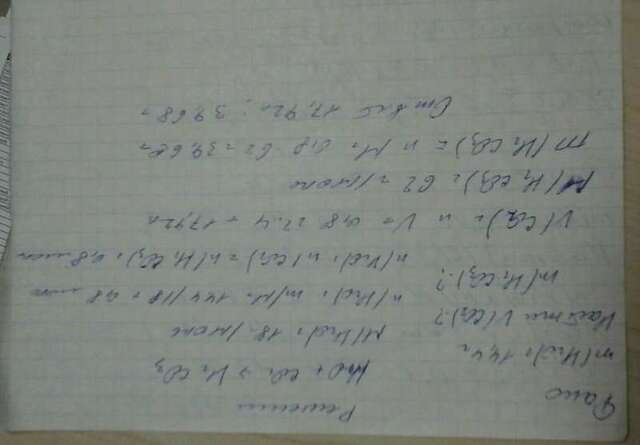 Дано
Решение
m(H2O) = 14,4г
H2O + CO2 → H2CO3
Найти V(CO2)-?
M(H2O) = 18 г/моль
m(H2CO3)-?
n(H2O) = m/M = 14,4/18 = 0,8 моль
n(H2O) = n(CO2) = n(H2CO3) = 0,8 моль
V(CO2) = n V = 0,8 22,4 = 17,92л
M(H2CO3) = 62 г/моль
m(H2CO3) = n M = 0,8 · 62 = 39,68г
Ответ 17,92л; 39,68г